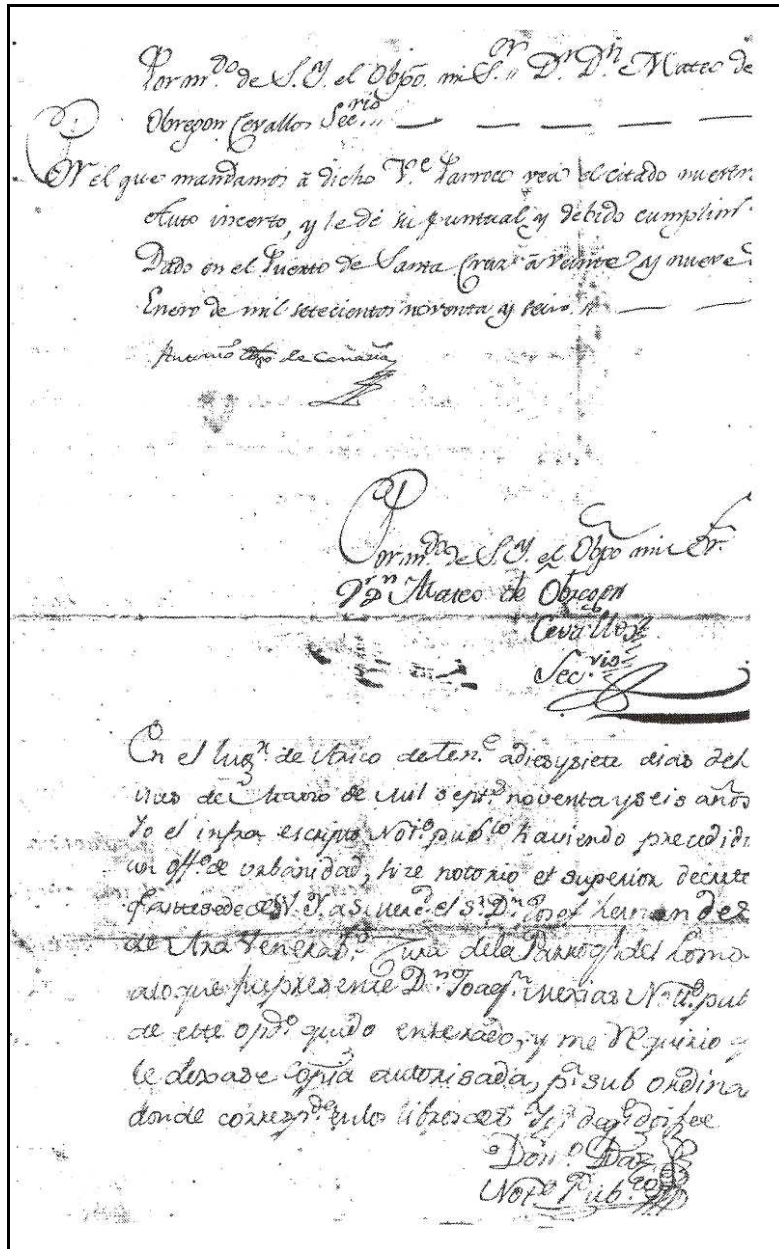 Por m.do de S. Y. el Obpo. mi S.or D.r D.n Mateo de
Obregon Cevallos Sec.rio
En el que mandamos à dicho V.e Parroco vea el citado nuestro
Auto incerto, y le dé su puntual y debido cumplim.
Dado en el Puerto de Santa Cruz à veinte y nueve
Enero de mil setecientos noventa y seis.
Antonio Obpo de Canaria
Por m.do de S. Y. el Obpo mi Sr.
D.r D.n Mateo de Obregon
Cevallos
Sec.rio
En el lug.r de Arico de Ten.e a dies y siete dias del
mes de Marzo de mil sept.s noventa y seis años
Yo el infra escripto Not.o pub.co haviendo precedido
un off.o de urbanidad, hise notorio el superior decreto
de S. Y. a su merd. el S.r D.n Josef hernandez
de Ara Venerab.e Cura de la Parroq.l del Lomo
a lo que fue presente D.n Joaq.n Mexias Not.o pub
de este opd.o quedo enterado, y me requirio q
le dexase Copia autorisada, p.a sub ordina
donde corresp.de en los libros
Dom.o Diaz
Not.o Pub.co